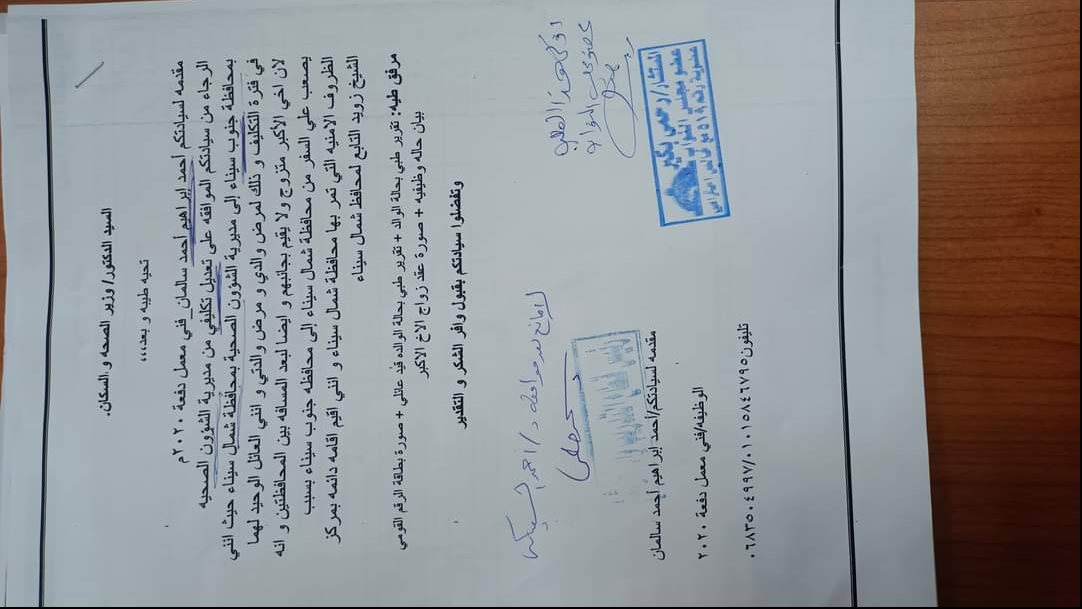 السيد الدكتور/ وزير الصحه و السكان.
تحيه طيبه و بعد،،،
مقدمه لسيادتكم أحمد ابراهيم أحمد سالمان_فني معمل دفعة ٢٠٢٠م
الرجاء من سيادتكم الموافقه على تعديل تكليفي من مديرية الشؤون الصحيه
بمحافظة جنوب سيناء إلى مديرية الشؤون الصحية بمحافظة شمال سيناء حيث انني
في فترة التكليف و ذلك لمرض والدي و مرض والدتي و انني العائل الوحيد لهما
لان اخي الأكبر متزوج ولا يقيم بجانبهم و ايضا لبعد المسافه بين المحافظتين و انه
يصعب علي السفر من محافظة شمال سيناء إلى محافظه جنوب سيناء بسبب
الظروف الامنيه التي تمر بها محافظة شمال سيناء و انني اقيم اقامه دائمه بمركز
الشيخ زويد التابع لمحافظ شمال سيناء
مرفق طيه: تقرير طبي بحالة الوالد + تقرير طبي بحالة الوالده قيد عائلي + صورة بطاقة الرقم القومي
بيان حاله وظيفيه + صورة عقد زواج الاخ الأكبر
وتفضلوا سيادتكم بقبول وافر الشكر و التقدير
عضو مجلس النواب
لا مانع بعد موافقة د/ احمد
المستشار/
عضو مجلس النواب
مقدمه لسيادتكم/أحمد ابراهيم أحمد سالمان
الوظيفه/فني معمل دفعة ٢٠٢٠
تليفون٠١٠١٥٨٤٦٧٧٩٥/٠٦٨٣٥٠٤٩٩٧